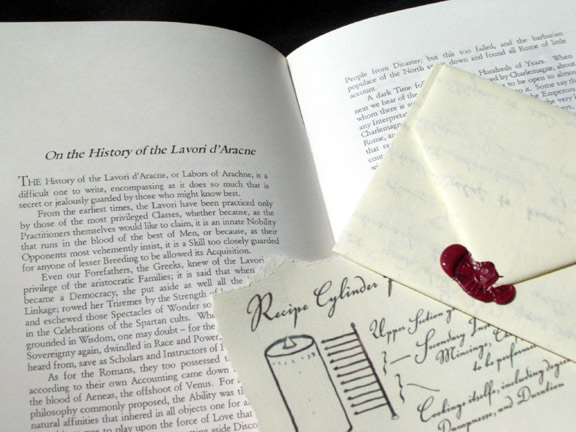 On the History of the Lavori d'Aracne
THE History of the Lavori d'Aracne, or Labors of Arachne, is a
difficult one to write, encompassing as it does so much that is
secret or jealously guarded by those who might know best.
From the earliest times, the Lavori have been practiced only
by those of the most privileged Classes, whether because, as the
Practitioners themselves would like to claim, it is an innate Nobility
that runs in the blood of the best of Men, or because, as their
Opponents most vehemently insist, it is a Skill too closely guarded
for anyone of lesser Breeding to be allowed its Acquisition.
Even our Forefathers, the Greeks, knew of the Lavori
privilege of the aristocratic Families; it is said that when
became a Democracy, she put aside as well all the
Linkage; rowed her Triremes by the Strength
and eschewed those Spectacles of Wonder so
in the Celebrations of the Spartan cults.
grounded in Wisdom, one may doubt – for the
Sovereignty again, dwindled in Race and Power,
heard from, save as Scholars and Instructors of
As for the Romans, they too possessed
according to their own Accounting came down
the blood of Aeneas, the offshoot of Venus. For
philosophy commonly proposed, the Ability was
natural affinities that inhered in all objects one for
to play upon the force of Love that
aside
People from Disaster; but this too failed, and the barbarian
populace of the North down and found all Rome of little
account.
A dark Time Hundreds of Years. When
next we hear of the by Charlemagne, about
whom there is to be open to almost
any it. Some say
Charlemagne the Emperor
Rome, the very
that
Recipe Cylinder
Upper Section
Secondary
Mincing,
to be
Cookings itself, including
Dampness, and Duration